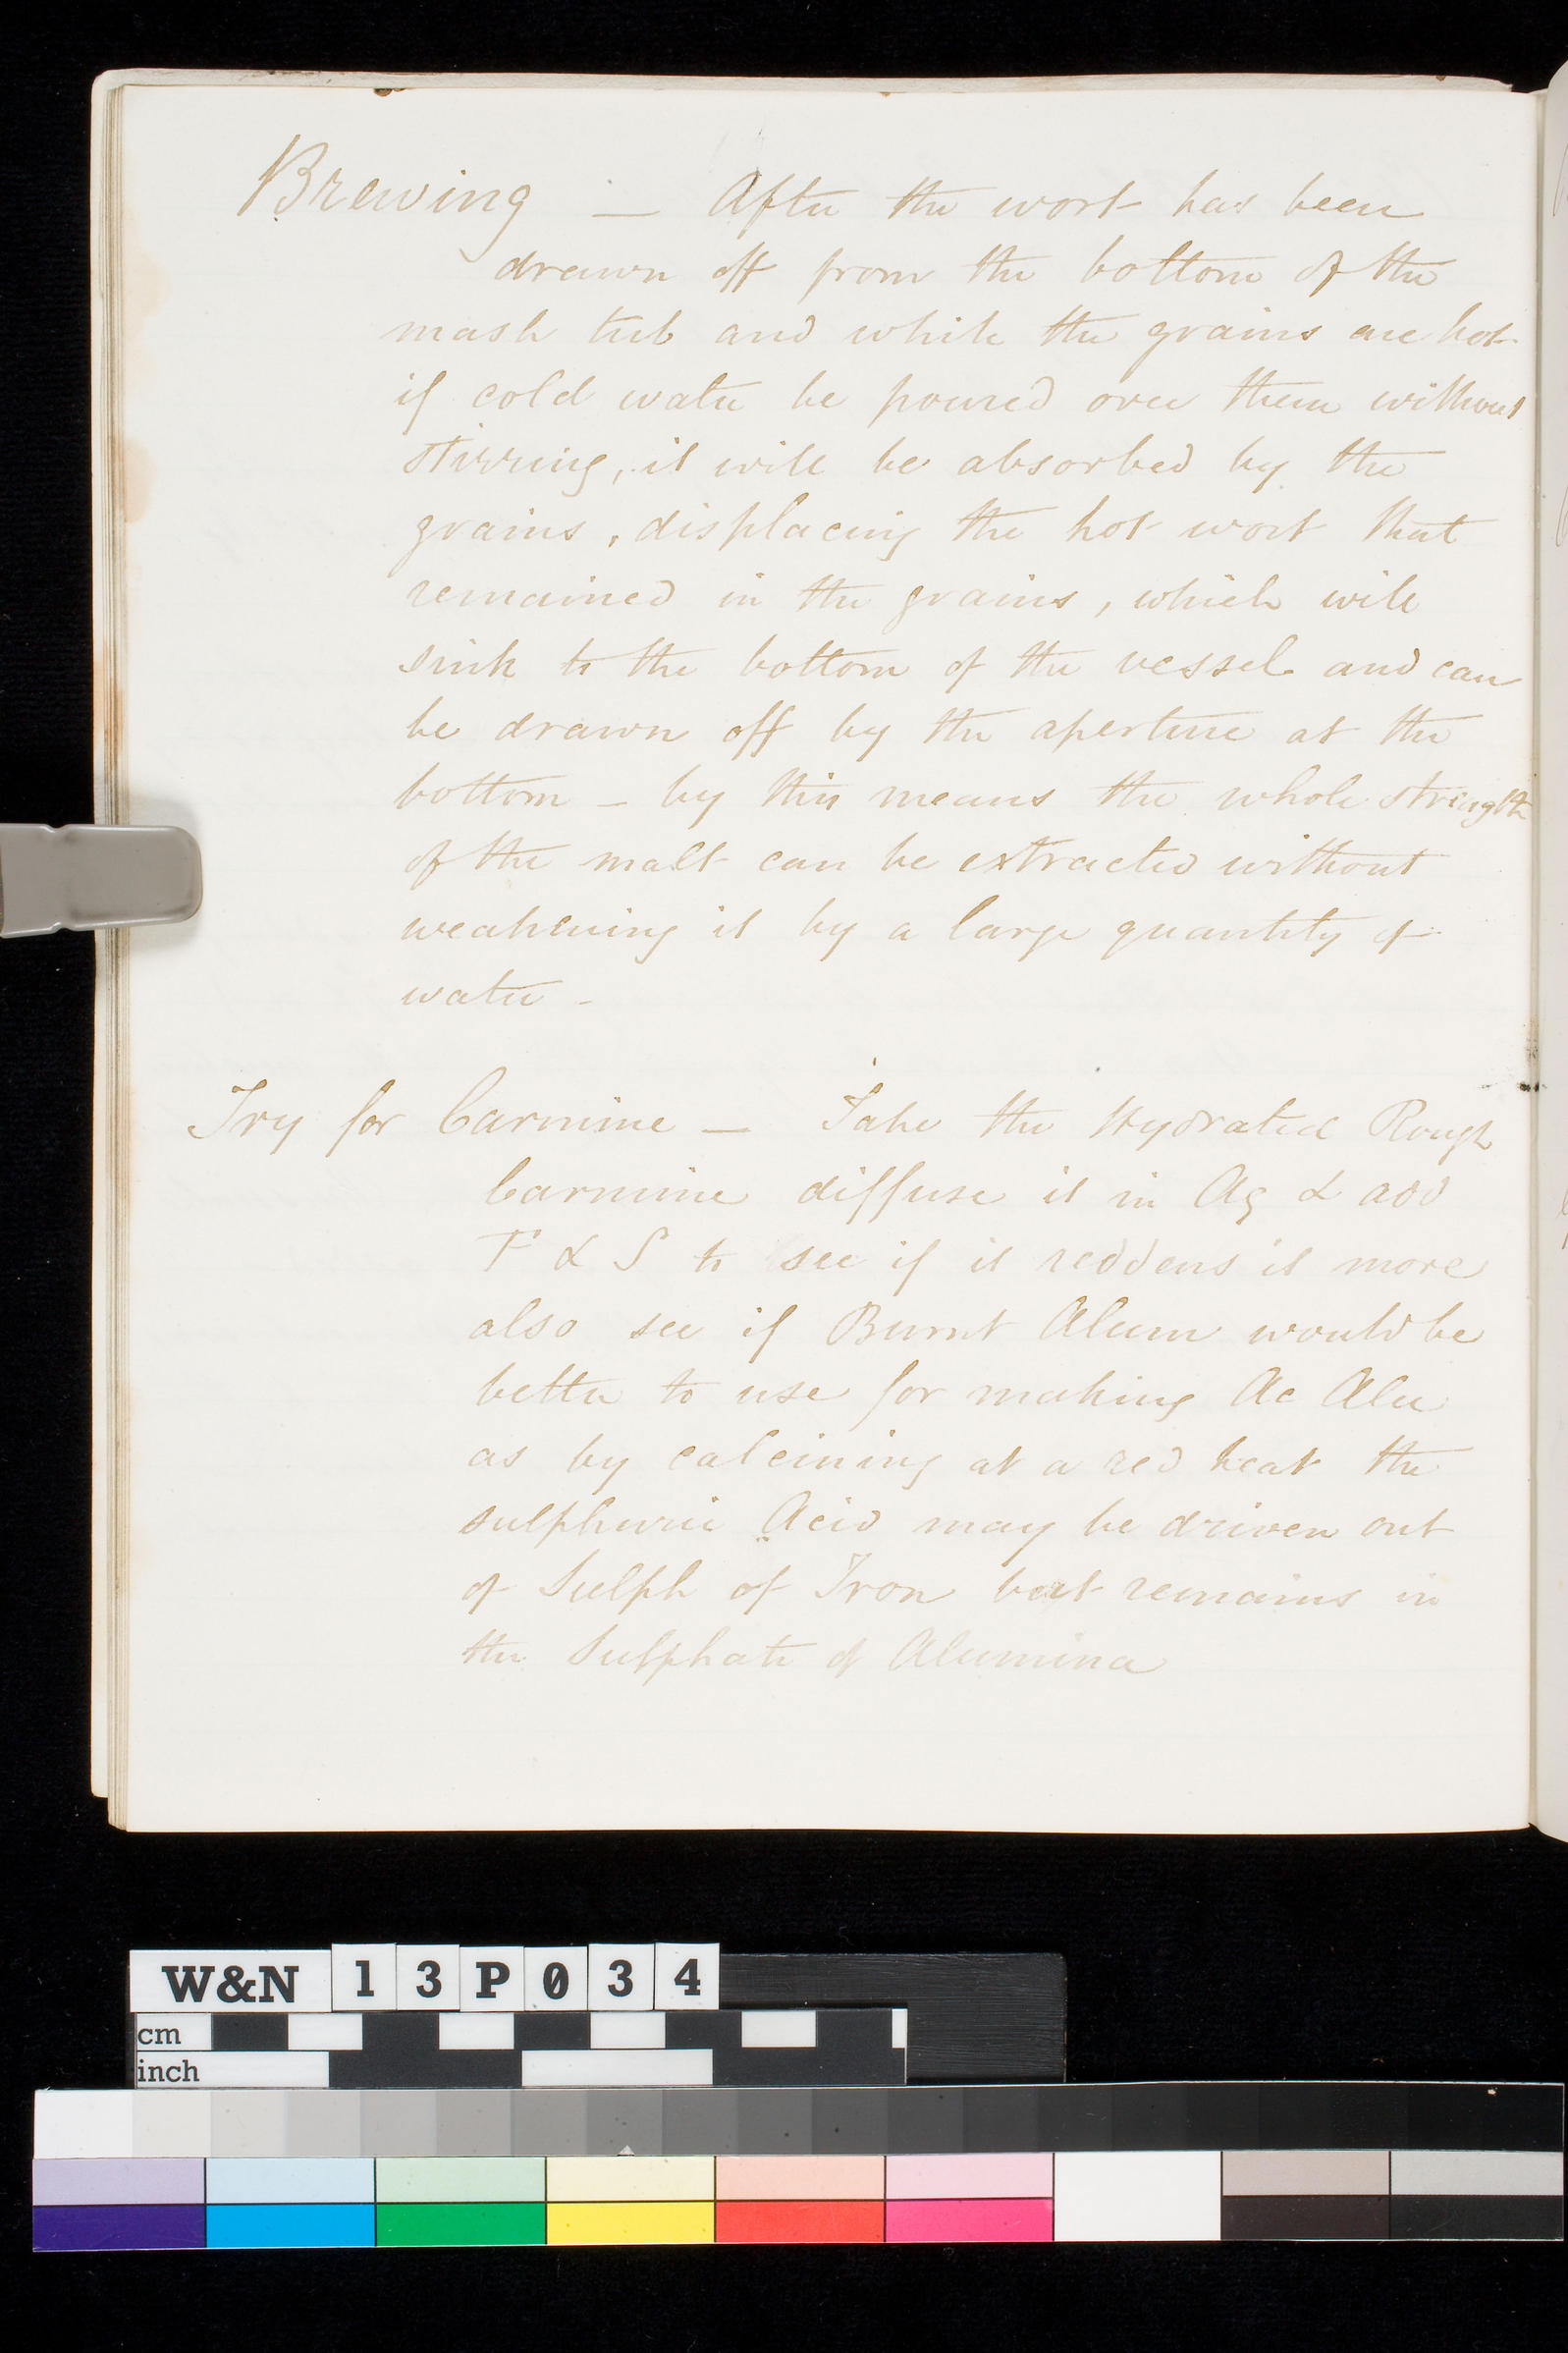 Brewing — After the wort has been
drawn off from the bottom of the
mash tub and while the grains are hot
if cold water be poured over them without
stirring, it will be absorbed by the
grains, displacing the hot wort that
remained in the grains, which will
sink to the bottom of the vessel and can
be drawn off by the aperture at the
bottom – by this means the whole strength
of the malt can be extracted without
weakening it by a large quantity of
water –
Try for Carmine — Take the Hydrated Rough
Carmine diffuse it in Aq & add
F & S to see if it reddens it more
also see if Burnt Alum would be
better to use for making Ac Alu
as by calcining at a red heat the
sulphuric Acid may be driven out
of Sulph of Iron but remains in
the Sulphate of Alumina
W&N 13P034
cm
inch